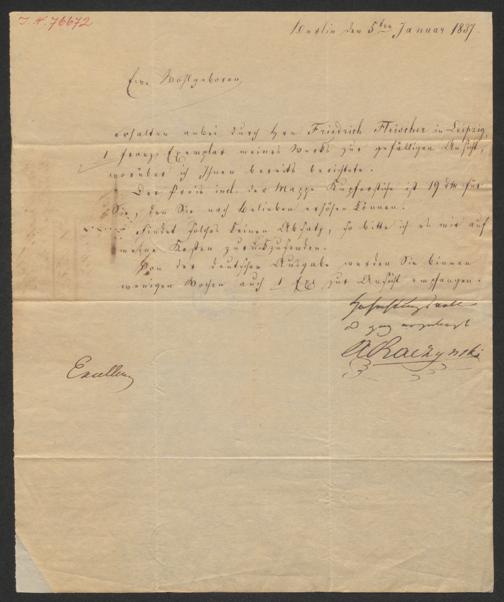 I. N. 76672
Berlin den 5ten Januar 1837.
Euer Wohlgeboren
erhalten anbei durch Hrn Friedrich Fleischer in Leipzig,
1 franz. Exemplar meines Werks zur gefälligen Ansicht,
worüber ich Ihnen bereits berichtete.
Der Preis incl. der Mappe Kupferstiche ist 19 für
Sie, den Sie nach Belieben erhöhen können.
Findet solches keinen Absatz, so bitte ich es mir auf
meine Kosten zurückzusenden.
Von der deutschen Ausgabe werden Sie binnen
wenigen Wochen auch 1 Ex zur Ansicht empfangen.
Hochachtungsvoll
ganz ergebenst
ARaczynski